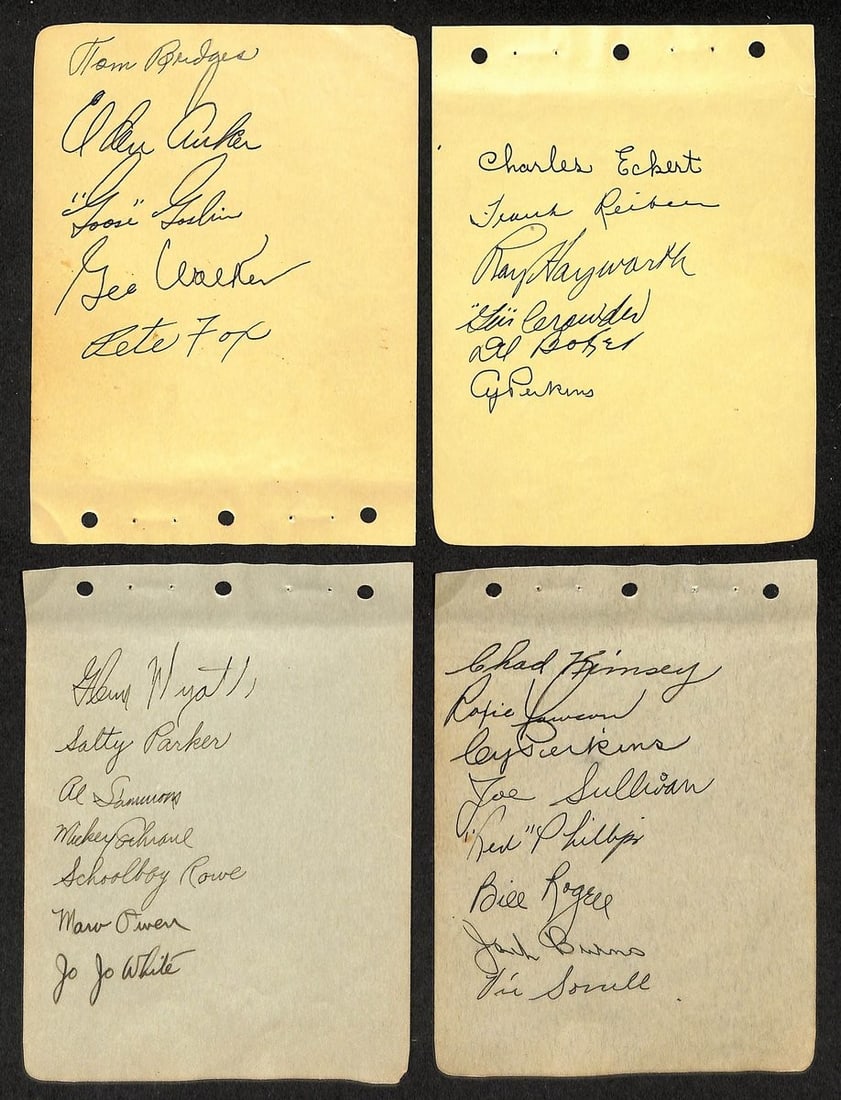 Tom Bridges
Elden Auker
"Goose" Goslin
Gee Walker
Pete Fox
Charles Eckert
Frank Reiber
Ray Hayworth
"Gen" Crowder
Del Baker
Cy Perkins
Glenn Myatt
Salty Parker
Al Simmons
Mickey Cochrane
Schoolboy Rowe
Marv Owen
Jo Jo White
Chad Kimsey
Roxie Lawson
Cy Perkins
Joe Sullivan
"Red" Phillips
Bill Rogell
Jack Burns
Vic Sorrell